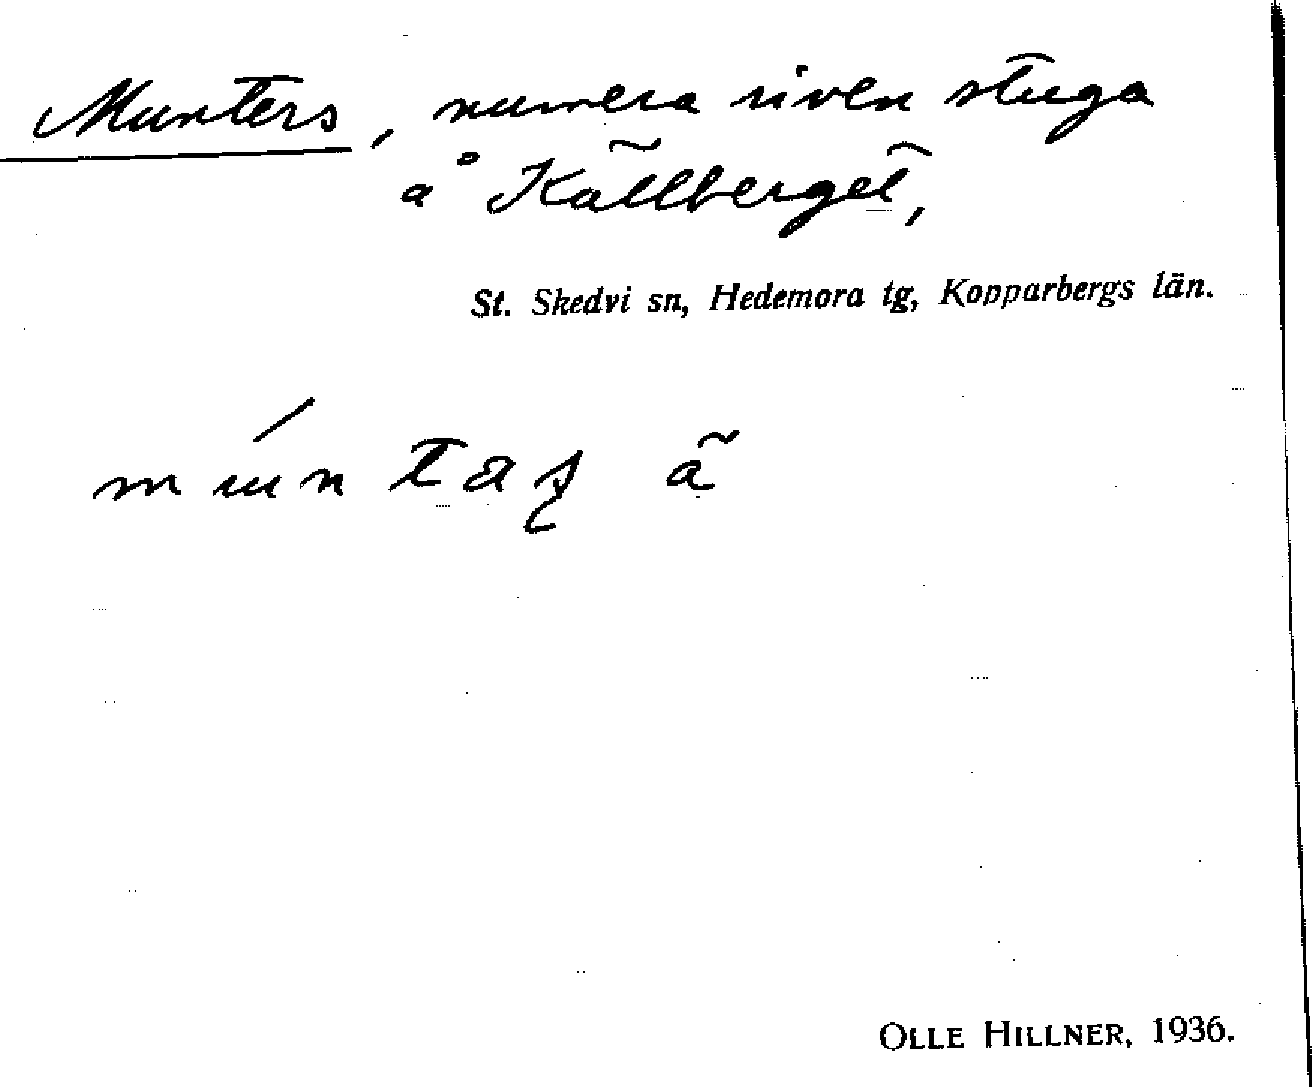 Munters, numera riven stuga
å Källberget,
St. Skedvi sn, Hedemora tg, Kopparbergs län.
OLLE HILLNER, 1936.